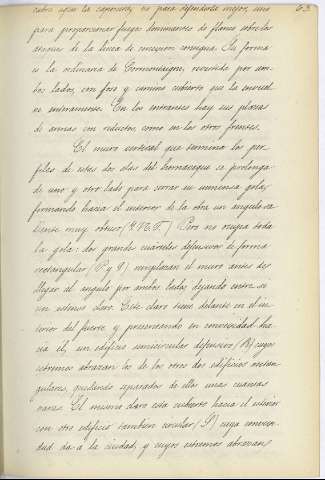 63
cubra aque la caponera, no para defenderla mejor, sino
para proporcionar fuegos dominantes de flanco sobre los
ataques de la linea de invasion contigua. Su forma
es la ordinaria de Cormontaigne, revestida por am-
bos lados, con foso y camino cubierto que la envuel-
ve enteramente. En los entrantes hay sus plazas
de armas con reductos, como en los otros frentes.
El muro vertical que termina los per-
files de estas dos alas del hornaveque se prolonga
de uno y otro lado para cerrar su inmensa gola,
formando hacia el interior de la obra un angulo sa-
liente muy obtuso Pero no ocupa toda
la gola: dos grandes cuarteles defensivos de forma
rectangular (P. y Q) remplazan el muro antes de
llegar al angulo por ambos lados, dejando entre si
un estenso claro. Este claro tiene delante en el in-
terior del fuerte, y presentando su convexidad ha-
cia él, un edificio semicircular defensivo (R) cuyos
estremos abrazan los de los otros dos edificios rectan-
gulares, quedando separados de ellos unas cuantas
varas. El mismo claro esta cubierto hacia el esterior
con otro edificio tambien circular (S) cuya convexi-
dad da a la ciudad, y cuyos estremos abrazan